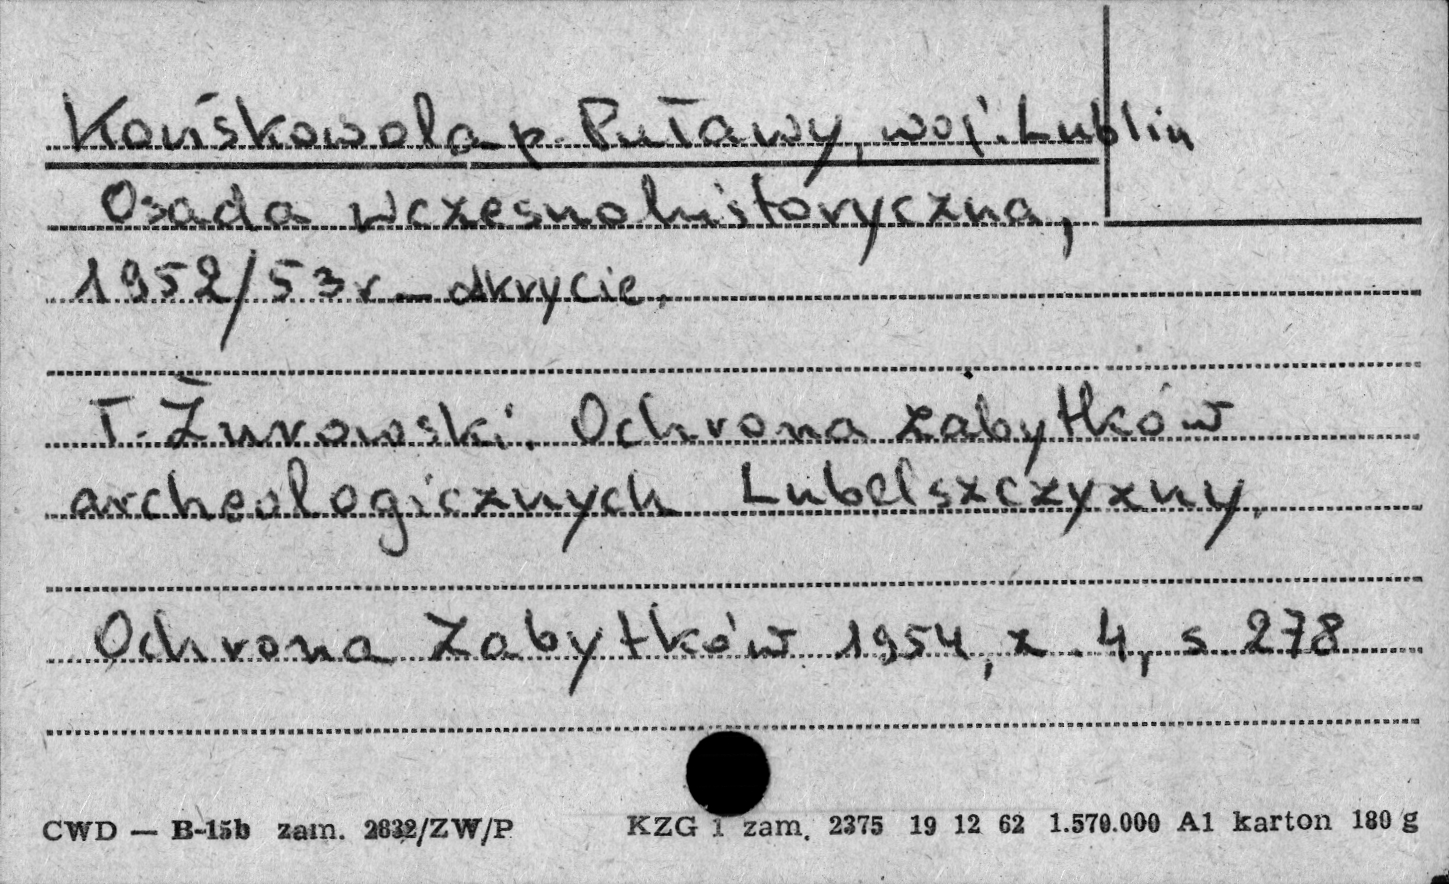 Końskowola p. Puławy, woj. Lublin
Osada wczesnohistoryczna,
1952/53 r – odkrycie.
T. Żurowski. Ochrona zabytków
archeologicznych Lubelszczyzny.
Ochrona Zabytków 1954, z. 4, s. 278
CWD — B-15b zam. 2632/ZW/P KZG 1 zam. 2375 19 12 62 1.570.000 A1 karton 180 g